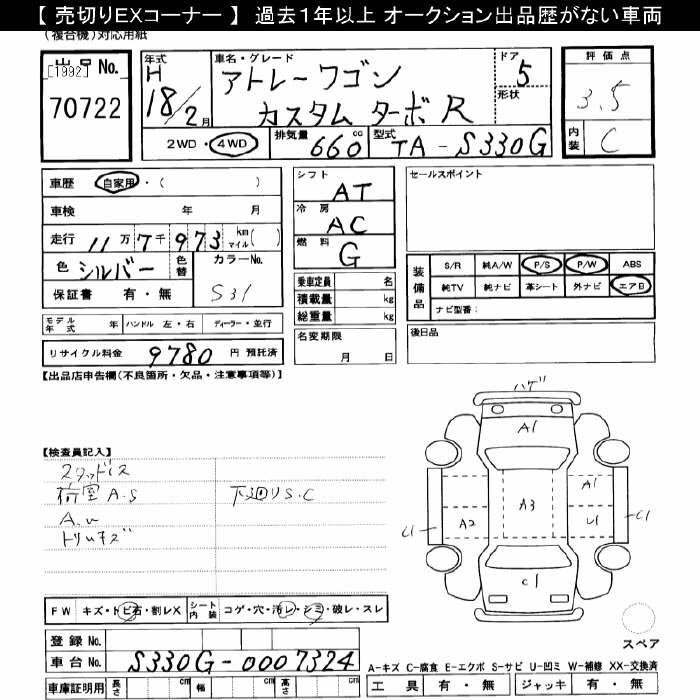 【 売切りEXコーナー 】 過去1年以上 オークション出品歴がない車両
(複合機)対応用紙
出品 No.
[1992]
70722
年式 H 18/2月
車名・グレード
アトレーワゴン
カスタム ターボ R
ドア 5
形状
2WD・4WD 排気量 660 cc 型式 TA-S330G
評価点
3.5
内装 C
車歴 自家用・( )
車検 年 月
走行 11万7千973 km マイル( )
色 シルバー 色替 カラーNo. S31
保証書 有・無
モデル年式 年 ハンドル 左・右 ディーラー・並行
リサイクル料金 9780 円 預託済
シフト AT
冷房 AC
燃料 G
乗車定員 名
積載量 kg
総重量 kg
名変期限
月 日
セールスポイント
装備品
S/R 純A/W P/S P/W ABS
純TV 純ナビ 革シート 外ナビ エアB
ナビ型番:
後日品
【出品店申告欄(不良箇所・欠品・注意事項等)】
【検査員記入】
スタッドレス
荷室 A.S 下廻りS.C
A.u
トリムキズ
ハゲ
A1
A1
C1 A2 A3 U1 C1
C1
スペア
FW キズ・トビ石・割レX シート内装 コゲ・穴・汚レ・シミ・破レ・スレ
登録 No.
車台 No. S330G-0007324
車庫証明用 長さ cm 幅 cm 高さ cm
A-キズ C-腐食 E-エクボ S-サビ U-凹ミ W-補修 XX-交換済
工具 有・無 ジャッキ 有・無